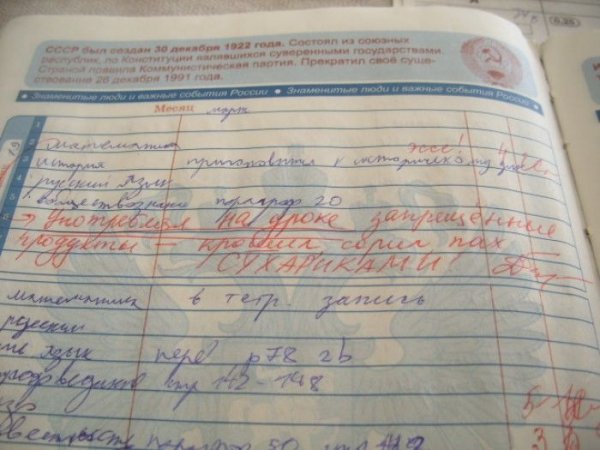 СССР был создан 30 декабря 1922 года. Состоял из союзных
республик, по Конституции являвшихся суверенными государствами.
Страной правила Коммунистическая партия. Прекратил своё суще-
ствование 26 декабря 1991 года.
Знаменитые люди и важные события России • Знаменитые люди и важные события России •
Месяц март
19
математика эссе!
история приготовится к историческому
русский язык
обществознание параграф 20
Употреблял на уроке запрещённые
продукты — крошил сорил пах
СУХАРИКАМИ
математика в тетр. запись
русский
язык пер p78 2b
стр 142-148
50 стр